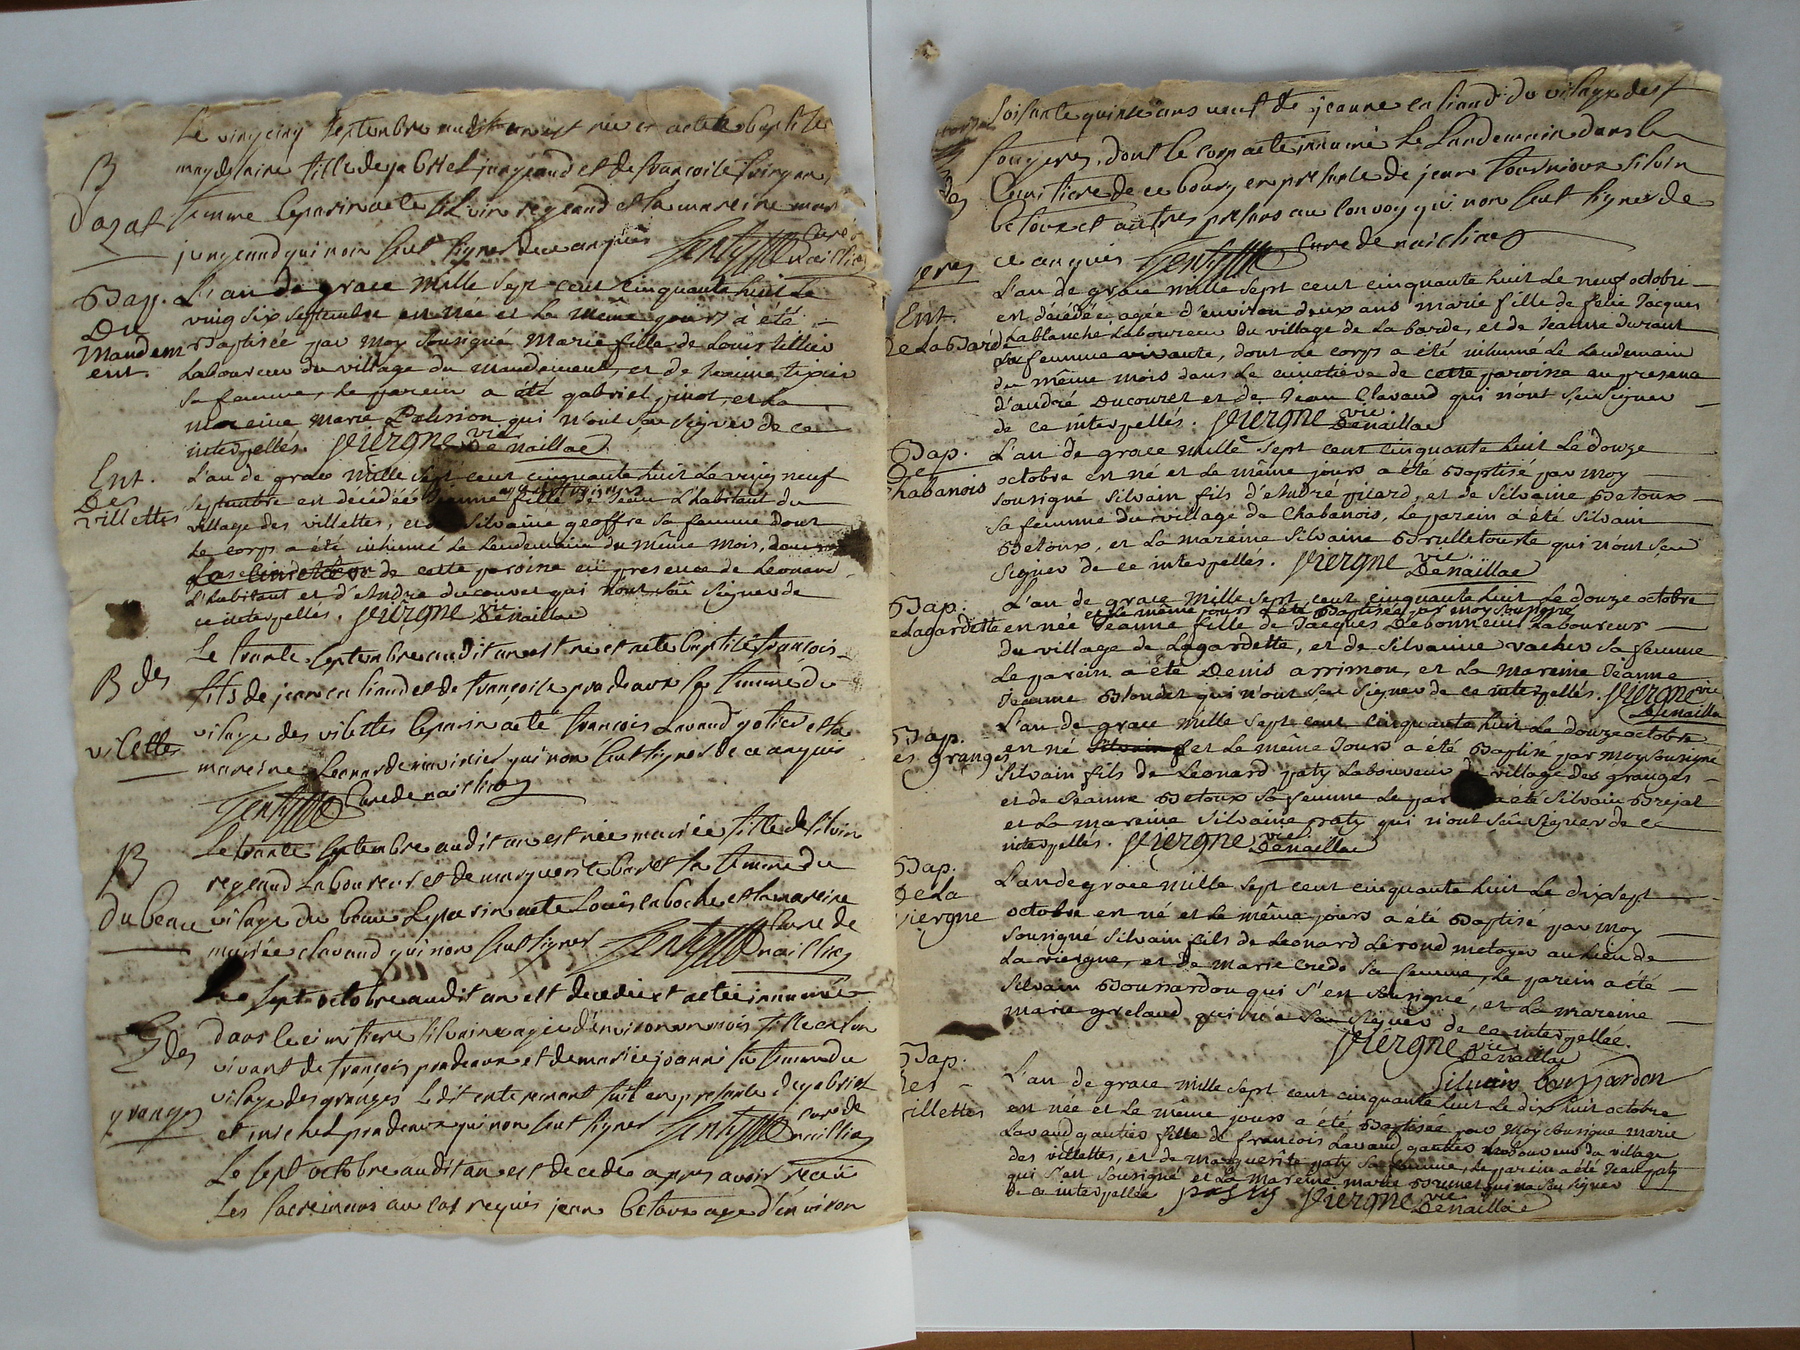 Le vingcinq septembre audit an est née et acté baptisée
B
magdelaine fille de gabriel jungeaud et de francoise
D'azat
femme le parin a eté silvin regeaud et la mareine
jungeaud qui non seut signer de ce anquis
Curé de naillia
Bap.
Du
Mandem
ent.
L'an de grace mille sept cent cinquante huit le
ving six septembre est née et le même jours a été
Baptisée par moy sousigné Marie fille de Louis tillier
Laboureur du village du mandement, et de Jeanne tixier
sa femme, le parein a été gabriel pinot, et La
mareine marie Pelision qui n'ont sçu signer de ce
interpellés. Viergne vic. De naillac
Ent.
Des
villettes
L'an de grace mille sept cent cinquante huit Le ving neuf
septembre est décédée Jeanne fille de Jean L'habitant du
village des villettes, et de silvaine geoffre sa femme dont
Le corps a été inhumé Le Lendemain du même mois, dans
de cette paroisse en presence de Leonard
L'habitant et d'Andre ducouret qui n'ont sçu signer de
ce interpellés. Viergne vic. Denaillac
Le trante septembre audit an est né et acté baptisé francois
B des
vilettes
fils de jean caliaud et de francoise pradeaux sa femme du
vilage des vilettes le parin acté francois Lavaud gotier et la
mareine Leonarde qui non seut signer de ce anquis
Curé de naillia
B
du beau
Le trante septembre audit an est née mariée fille de silvin
regeaud Laboureur et de marguerite baret sa femme du
vilage du beau le parin acté Loüis laboche et la mareine
mariée clavaud qui non seut signer Curé de naillia
Le sept octobre audit an est decedée et actée innumée
E des
granges
dans le cimetiere silvaine agée d'environ un mois fille en son
vivant de françois pradeaux et de mariée joanni sa femme du
vilage des granges Ledit enterement fait en presente de gabriel
et michel pradeaux qui non seut signer Curé de naillia
Le sept octobre audit an est decedé apres avoir receü
Les sacremans au cas requis jean betoux agé d'environ
soisante quinse ans veuf de jeanne caliaud du vilage des
fougeres, dont le corp acté innumé Le Landemain dans le
Cemitiere de ce bourg en presante de jean fournioux silvin
betoux et autres presans au convoy qui non seut signer de
ce anquis Curé de naillia
Ent.
De La Bard
L'an de grace mille sept cent cinquante huit le neuf octobre
est décédée agée d'environ deux ans marie fille de feüe Jacques
Lablanche Laboureur du village de La barde, et de Jeanne durant
sa femme vivante, dont Le corps a été inhumé Le Lendemain
du même mois dans Le cimetiere de cette paroisse en presence
d'andré Ducouret et de Jean Clavaud qui n'ont sçu signer
de ce interpellés. Viergne vic. Denaillac
Bap.
De
Chabanois
L'an de grace mille sept cent cinquante huit Le douze
octobre est né et le même jours a été Baptisé par moy
sousigné silvain fils d'André picard, et de silvaine Betoux
sa femme du village de Chabanois, Le parein a été silvain
Betoux, et La mareine silvaine Brulletourte qui n'ont sçu
signer de ce interpellés. Viergne vic. Denaillac
Bap.
eLagardette
L'an de grace mille sept cent cinquante huit Le douze octobre
et Le même jours a été Baptisée par moy sousigné
est née Jeanne fille de Jacques Debonneuil Laboureur
du village de Lagardette, et de silvaine vacher sa femme
Le parein a été Denis arrimon, et La mareine Jeanne
Jeanne Blondet qui n'ont sçu signer de ce interpellés. Viergne vic. Denailla
Bap.
es granges
L'an de grace mille sept cent cinquante huit Le douze octobre
est né et Le même Jours a été Baptisé par moy sousigné
silvain fils de Leonard paty Laboureur du village des granges
et de Jeanne Betoux sa femme Le par a été silvain Brejat
et La mareine silvaine paty qui n'ont sçu signer de ce
interpellés. Viergne vic. Denaillac
Bap.
De La
viergne
L'an de grace mille sept cent cinquante huit Le dixsept
octobre est né et Le même jours a été Baptisé par moy
sousigné silvain fils de Leonard Lérond metoyer au lieu de
La viergne, et de marie Credo sa femme, Le parein a été
silvain Boussardon qui s'est sousigné, et La mareine
marie grelaud qui n'a sçu signer de ce interpellée.
Viergne vic. Denaillac
Silvain boussardon
Bap.
Des
villettes
L'an de grace mille sept cent cinquante huit Le dix huit octobre
est née et Le même jours a été Baptisée par moy sousigné marie
Lavaud gautier fille de francois Lavaud gautier Laboureur du village
des villettes, et de marguerite paty sa femme, Le parein a été Jean paty
qui s'est sousigné et La mareine marie Brunet qui n'a sçu signer
De ce interpellée Viergne vic. Denaillac